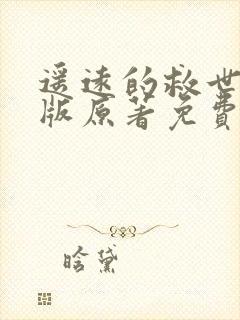 遥远的救世
版原著免费
晗黛